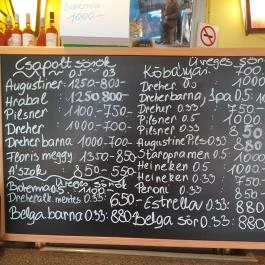 Bohemia
1000.-
Csapolt sörök
0.5 - 03
Augustiner: 1250-800-
Hrabal 1250 800-
Pilsner 1100-750-
Dreher 1000-700-
Dreher barna 1000-700-
Floris meggy 1350-850-
A'szok 850-550
Üveges sörök
Bohemia 0.5 1100
Dreher alk. mentes 0.33: 650-
Belga barna 0.33: 880
Üveges sör
Kőbányai 700.
Dreher 0.5 1000
Dreher barna, 0.5
Dreher 0.33 - 750-
Pilsner 0.5 : 1000
Pilsner 0.33 850
Augustine Pils 0.33 880
Staropramen 0.5 1000
Heineken 0.5 1000
Heineken 0.33 750
Peroni 0.33
Estrella 0.33: 880
Belga sör 0.33: 880